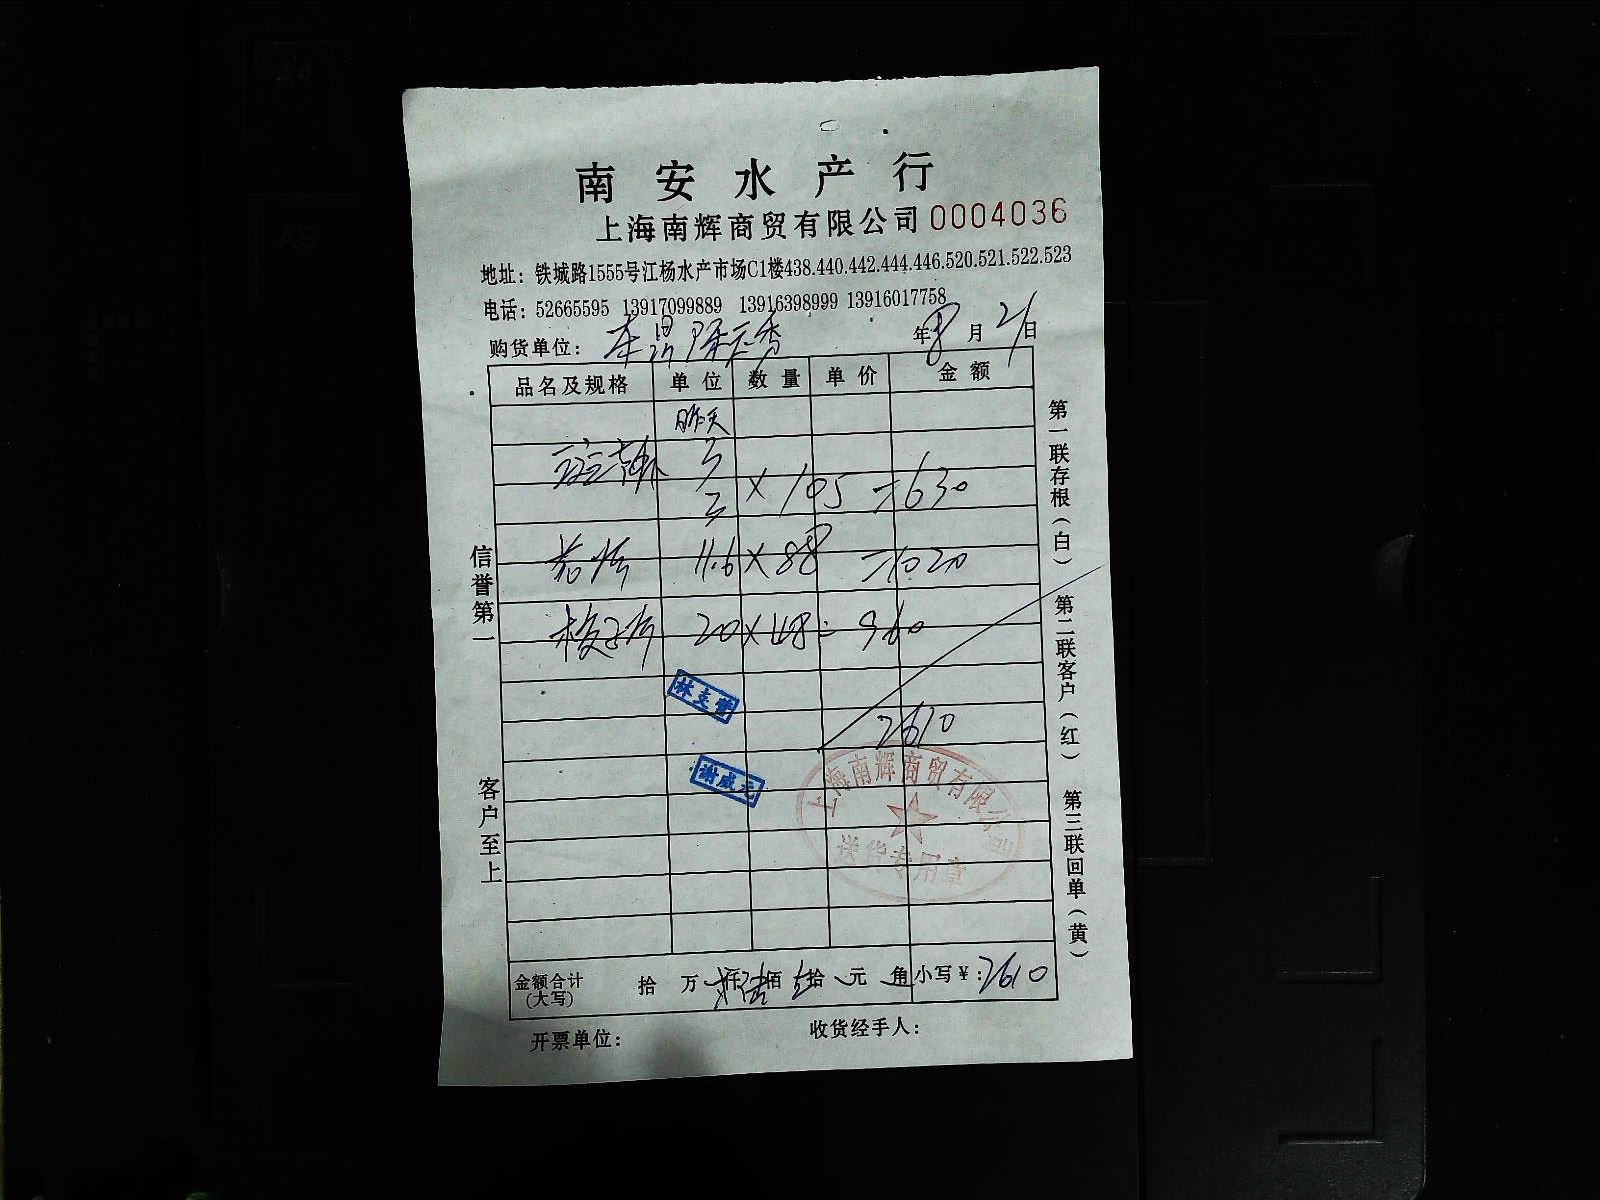 南安水产行
上海南辉商贸有限公司 0004036
地址：铁城路1555号江杨水产市场C1楼438.440.442.444.446.520.521.522.523
电话：52665595 13917099889 13916398999 13916017758
购货单位： 年 8 月 21 日
品名及规格 单位 数量 单价 金额
昨天
3
3 × 105 = 630
11.6 × 88 = 1020
20 × 48 = 960
林支管
2610
谢成元
上海南辉商贸有限公司
送货专用章
金额合计(大写) 拾 万 仟 佰 拾 元 角 小写￥：2610
开票单位： 收货经手人：
信誉第一
客户至上
第一联存根（白）
第二联客户（红）
第三联回单（黄）